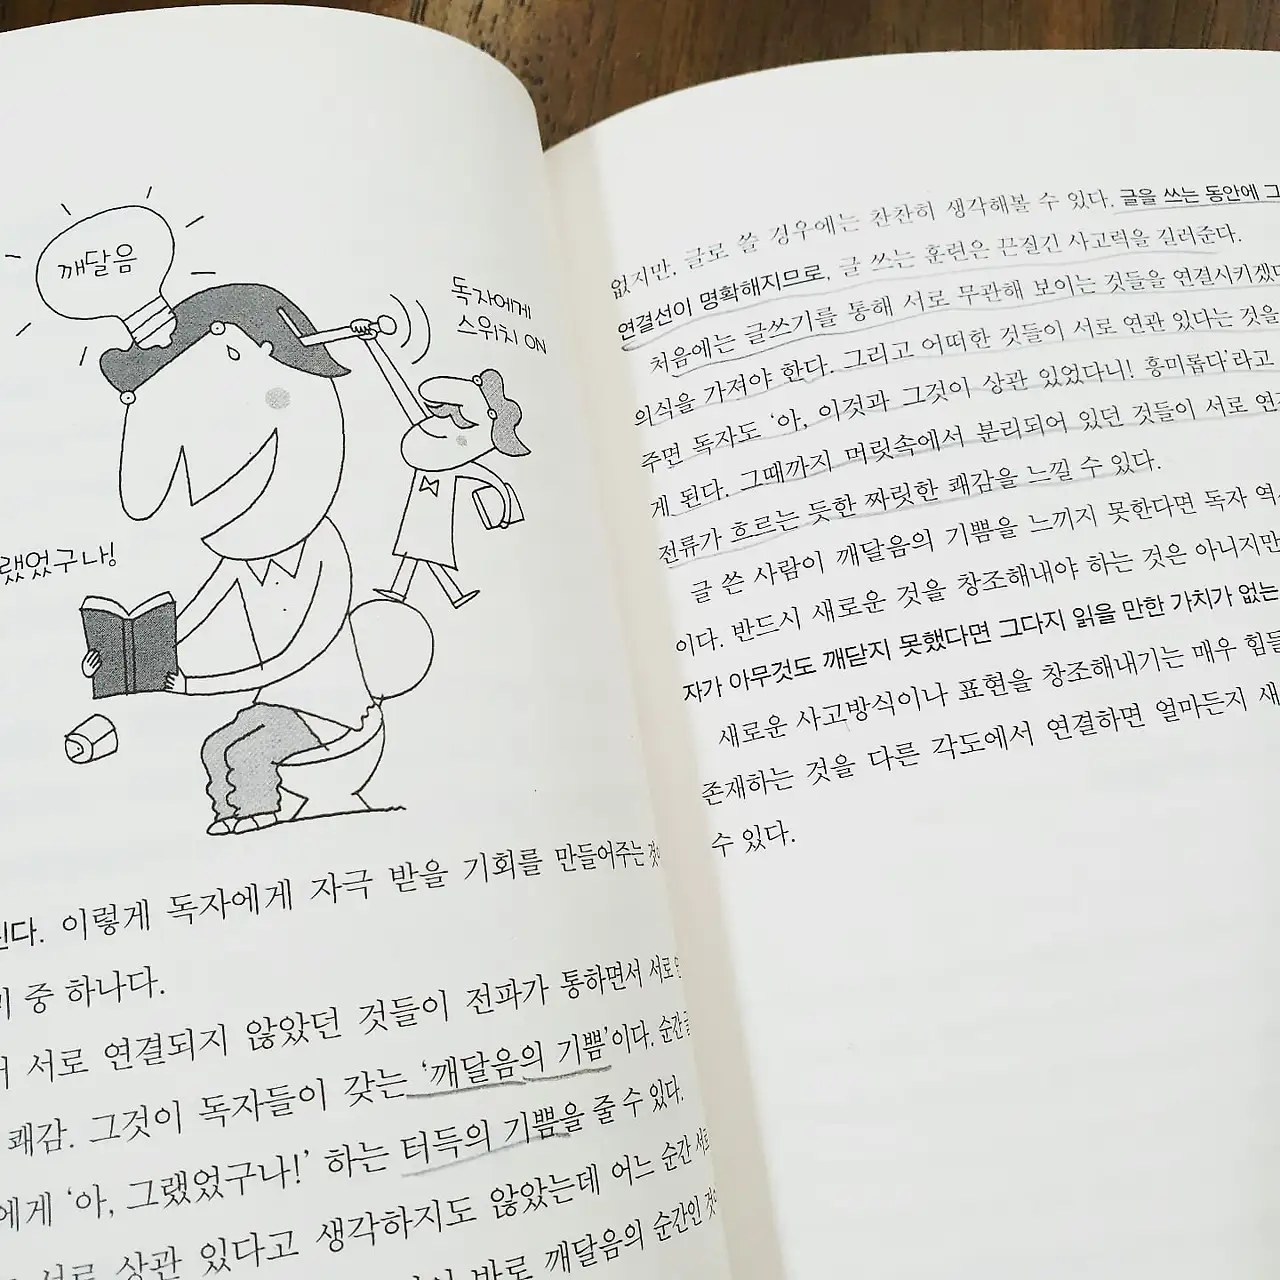 깨달음
독자에게
스위치 ON
랬었구나!
이렇게 독자에게 자극 받을 기회를 만들어주는
중 하나다.
서로 연결되지 않았던 것들이 전파가 통하면서 서로
쾌감. 그것이 독자들이 갖는 ‘깨달음의 기쁨’이다. 순간
에게 ‘아, 그랬었구나!’ 하는 터득의 기쁨을 줄 수 있다.
서로 상관 있다고 생각하지도 않았는데 어느 순간
바로 깨달음의 순간인
없지만, 글로 쓸 경우에는 찬찬히 생각해볼 수 있다. 글을 쓰는 동안에 그
연결선이 명확해지므로, 글 쓰는 훈련은 끈질긴 사고력을 길러준다.
처음에는 글쓰기를 통해 서로 무관해 보이는 것들을 연결시키겠다
의식을 가져야 한다. 그리고 어떠한 것들이 서로 연관 있다는 것을
주면 독자도 ‘아, 이것과 그것이 상관 있었다니! 흥미롭다’라고
게 된다. 그때까지 머릿속에서 분리되어 있던 것들이 서로
전류가 흐르는 듯한 짜릿한 쾌감을 느낄 수 있다.
글 쓴 사람이 깨달음의 기쁨을 느끼지 못한다면 독자 역시
이다. 반드시 새로운 것을 창조해내야 하는 것은 아니지만
자가 아무것도 깨닫지 못했다면 그다지 읽을 만한 가치가 없는
새로운 사고방식이나 표현을 창조해내기는 매우 힘들
존재하는 것을 다른 각도에서 연결하면 얼마든지 새
수 있다.